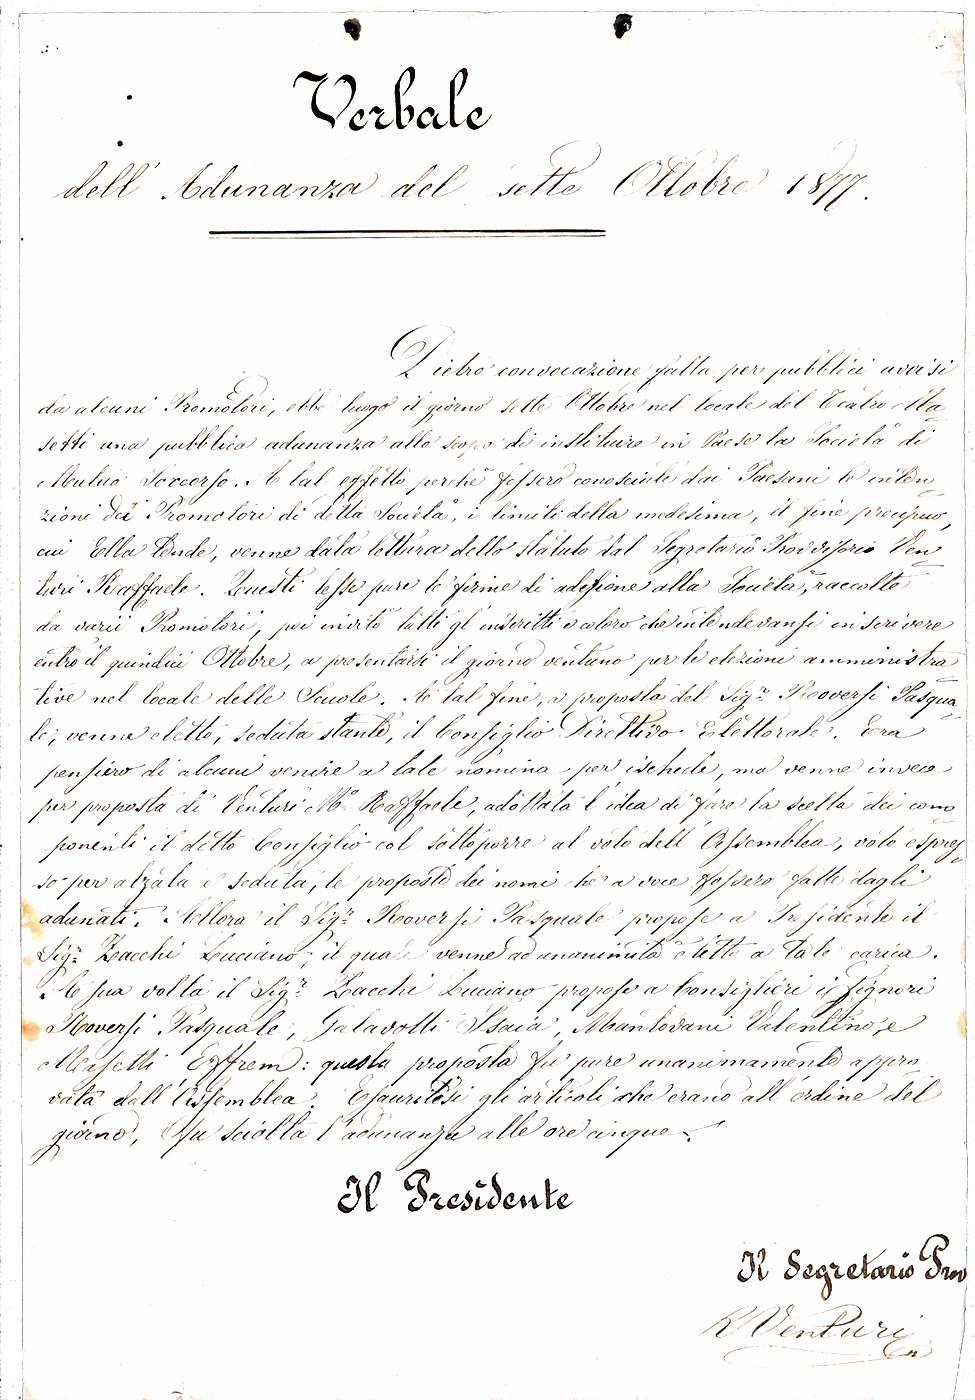 Verbale
dell' Adunanza del sette Ottobre 1877.
Dietro convocazione fatta per pubblici avvisi
da alcuni Promotori, ebbe luogo il giorno sette Ottobre nel locale del Teatro Ma
setti una pubblica adunanza allo scopo di instituire in Paese la Società di
Mutuo Soccorso. A tal effetto perchè fossero conosciute dai Paesani le inten
zioni dei Promotori di detta Società, i limiti della medesima, il fine precipuo,
cui Ella tende, venne data lettura dello Statuto dal Segretario Provvisorio Ven
turi Raffaele. Questi lesse pure le firme di adesione alla Società, raccolte
da varii Promotori, poi invitò tutti gl'inscritti e coloro che intendevansi inscrivere
entro il quindici Ottobre, a presentarsi il giorno ventuno per le elezioni amministra
tive nel locale delle Scuole. A tal fine, a proposta del Sigr. Rooversi Pasqua
le; venne eletto, seduta stante, il Consiglio Direttivo Elettorale. Era
pensiero di alcuni venire a tale nomina per ischede, ma venne invece
per proposta di Venturi Mo. Raffaele, adottata l'idea di fare la scelta dei com
ponenti il detto Consiglio col sottoporre al voto dell'Assemblea, voto espres
so per alzata e seduta, le proposte dei nomi che a voce fossero fatte dagli
adunati. Allora il Sigr. Rooversi Pasquale propose a Presidente il
Sigr. Zacchi Luciano, il quale venne ad unanimità eletto a tale carica.
A sua volta il Sigr. Zacchi Luciano propose a Consiglieri i Signori
Rooversi Pasquale, Galavotti Isaia, Mantovani Valentino, e
Masetti Effrem: questa proposta fu pure unanimamente appro
vata dall'Assemblea. Esauritisi gli articoli che erano all'ordine del
giorno, fu sciolta l'adunanza alle ore cinque.
Il Presidente
Il Segretario Prov
R Venturi